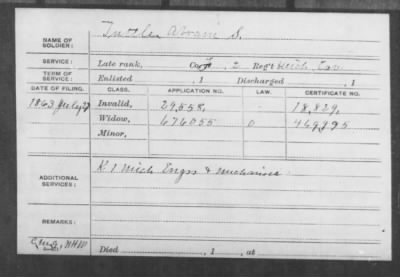 NAME OF SOLDIER: Tuttle, Abram S.
SERVICE: Late rank, Co. F, 2 Reg't Mich Cav
TERM OF SERVICE: Enlisted , 1 Discharged , 1
DATE OF FILING. CLASS. APPLICATION NO. LAW. CERTIFICATE NO.
1863 July 27 Invalid, 29,558, 18,829,
Widow, 676055 469,995
Minor,
ADDITIONAL SERVICES: K 1 Mich Engrs & Mechanics
REMARKS:
Died , 1 , at